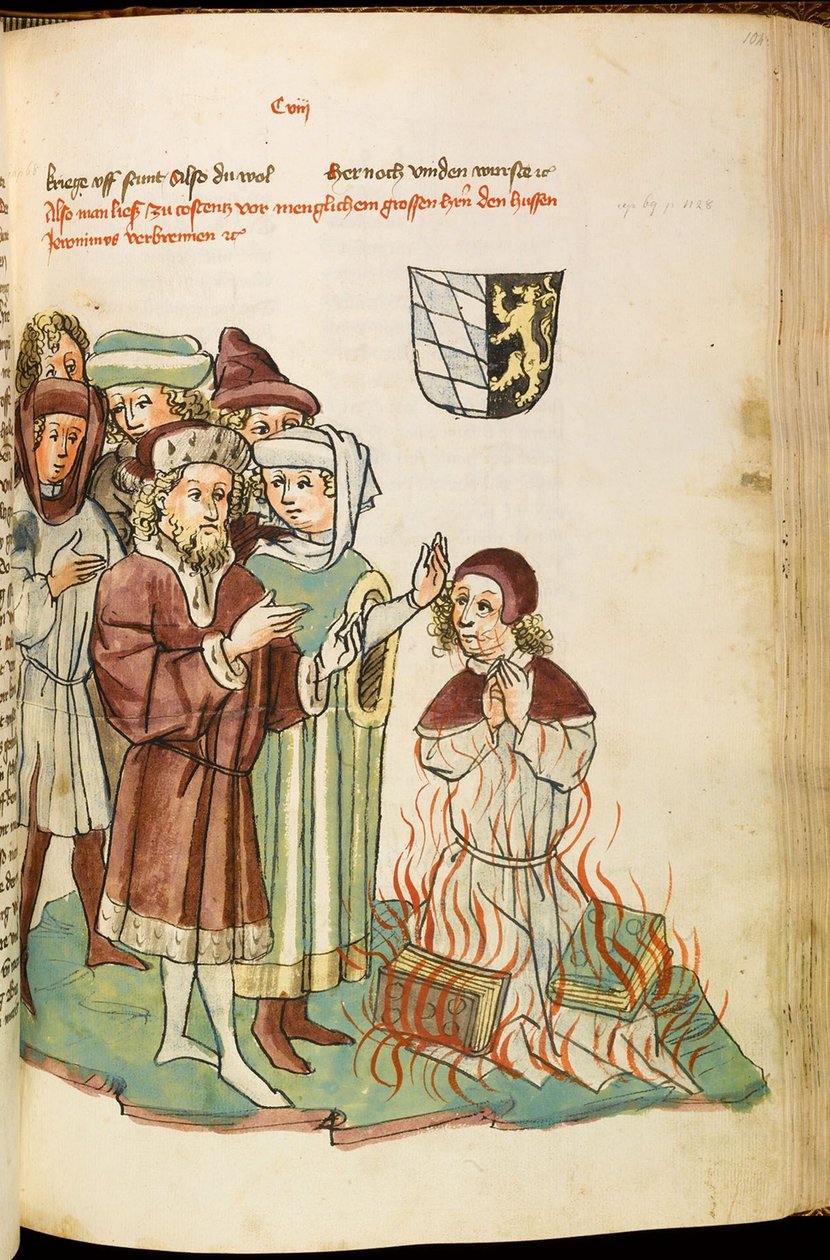 Cviij
kriege uff stunt Also du wol her noch vinden wurste ⁊c
Also man ließ zu costentz vor menglichem grossen hrn den hussen
Jeronimus verbrennen ⁊c
104